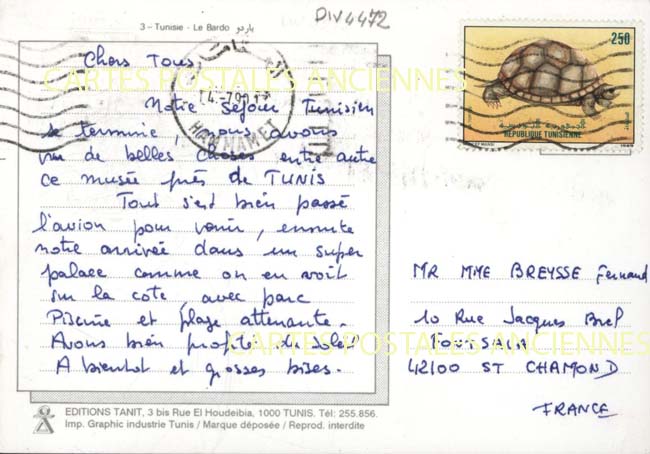 DIV4472
3 – Tunisie - Le Bardo باردو
CARTES POSTALES ANCIENNES
Chers Tous,
Notre séjour Tunisien
se termine, nous avons
vu de belles choses entre autre
ce musée près de TUNIS
Tout s'est bien passé
l'avion pour venir, ensuite
notre arrivée dans un super
palace comme on en voit
sur la cote, avec parc
Piscine et plage attenante.
Avons bien profité du soleil
A bientot et grosses bises.
HAMMAMET
250
REPUBLIQUE TUNISIENNE
MR MME BREYSSE Fernand
10 Rue Jacques Brel
FONTSALA
42100 ST CHAMOND
FRANCE
CARTES POSTALES ANCIENNES
EDITIONS TANIT, 3 bis Rue El Houdeibia, 1000 TUNIS. Tél: 255.856.
Imp. Graphic industrie Tunis / Marque déposée / Reprod. interdite